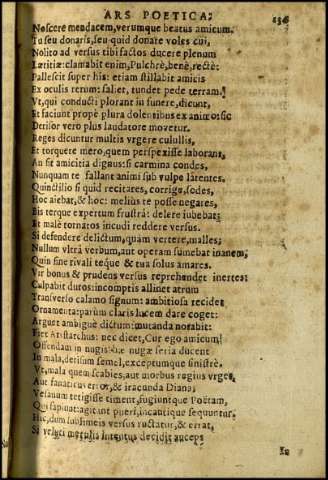 ARS POETICA. 136
Noscere mendacem, verumque beatus amicum.
Tu seu donaris, seu quid donare voles cui,
Nolito ad versus tibi factos ducere plenum
Lætitiæ: clamabit enim, Pulchrè, benè, rectè:
Pallescit super his: etiam stillabit amicis
Ex oculis rorem: saliet, tundet pede terram.
Vt, qui conducti plorant in funere, dicunt,
Et faciunt propè plura dolentibus ex animo: sic
Derisor vero plus laudatore movetur.
Reges dicuntur multis vrgere culullis,
Et torquere mero, quem perspexisse laborant,
An sit amicitia dignus: si carmina condes,
Nunquam te fallant animi sub vulpe latentes.
Quinctilio si quid recitares, corrige, sodes,
Hoc aiebat, & hoc: meliùs te posse negares,
Bis terque expertum frustrà: delere iubebat:
Et malè tornatos incudi reddere versus.
Si defendere delictum, quàm vertere, malles;
Nullum vltra verbum, aut operam sumebat inanem,
Quin sine rivali teque & tua solus amares.
Vir bonus & prudens versus reprehendet inertes:
Culpabit duros: incomptis allinet atrum
Transverso calamo signum: ambitiosa recidet
Ornamenta: parum claris lucem dare coget:
Arguet ambiguè dictum: mutanda notabit:
Fiet Aristarchus: nec dicet, Cur ego amicum
Offendam in nugis: hæ nugæ seria ducent
In mala, derisum semel, exceptumque sinistrè.
Vt, mala quem scabies, aut morbus regius vrget,
Aut fanaticus error, & iracunda Diana;
Vesanum tetigisse timent, fugiuntque Poëtam,
Qui sapiunt: agitant pueri, incautique sequuntur.
Hic, dum sublimeis versus ructatur, & errat,
Si veluti merulis intentus decidit auceps
In